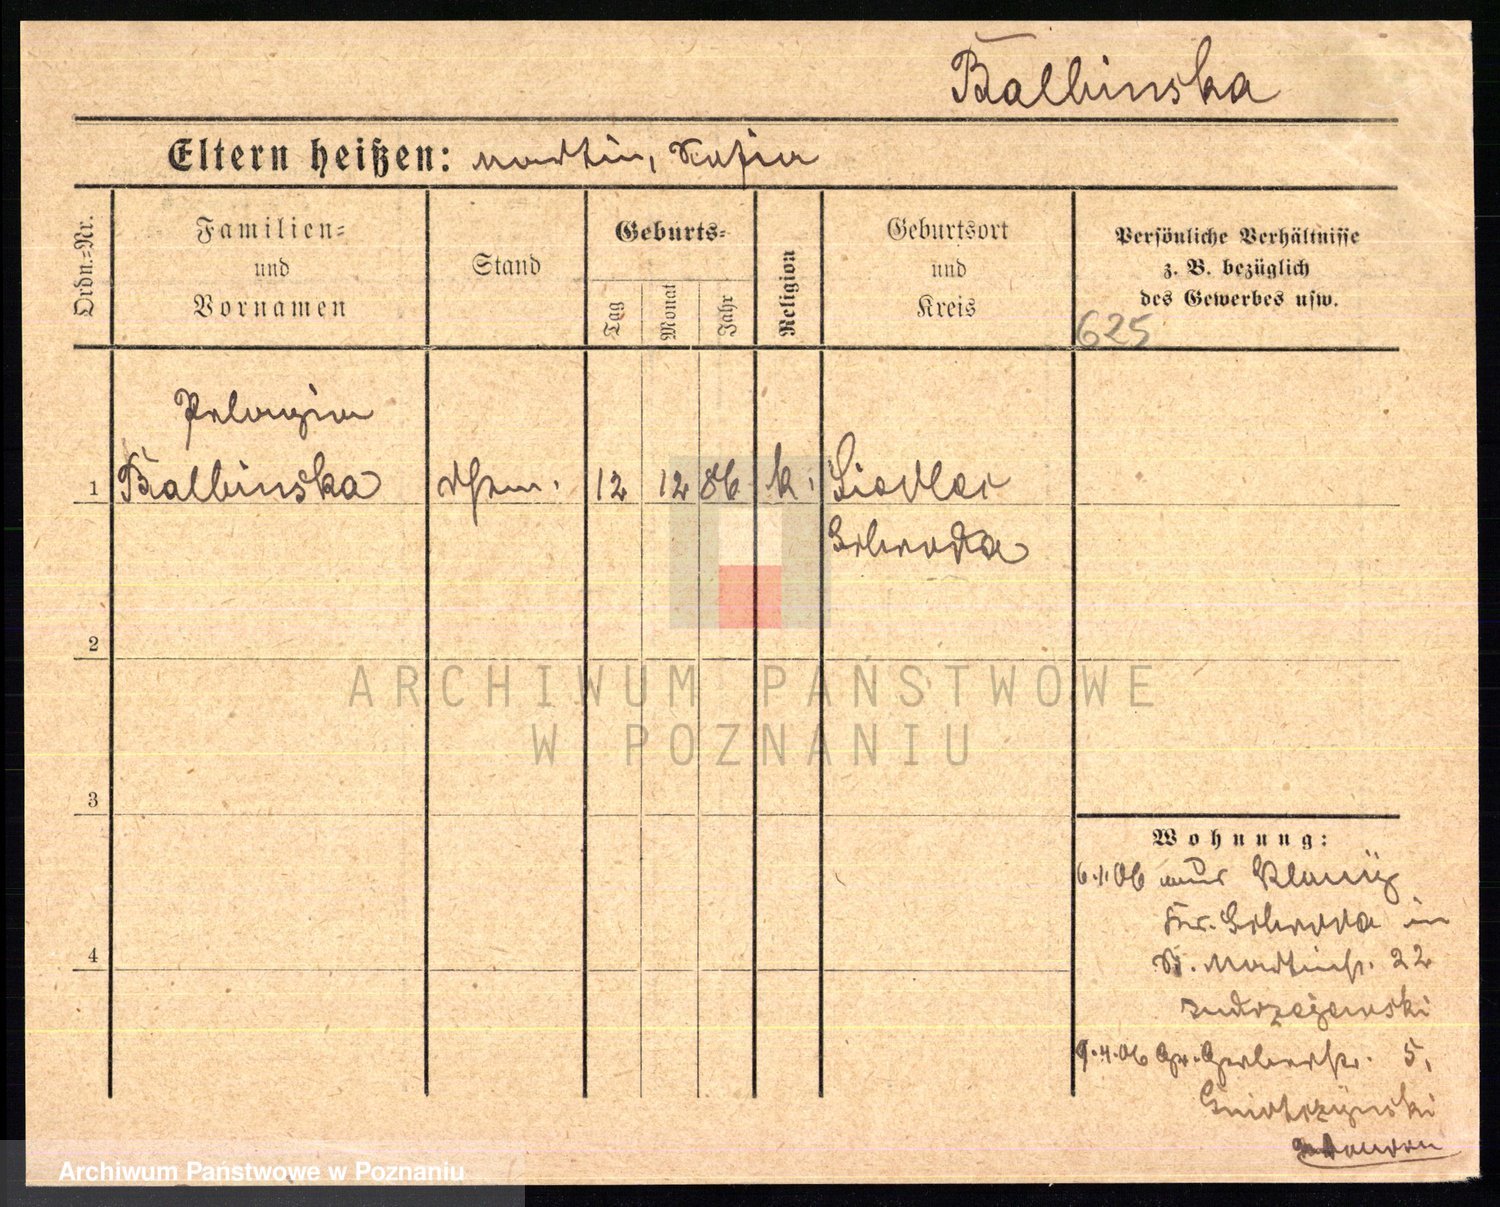 Balbinska
Eltern heißen: Martin, Sofia
Ordn.-Nr.
Familien- und Vornamen
Stand
Geburts-
Tag
Monat
Jahr
Religion
Geburtsort und Kreis
Persönliche Verhältnisse
z. B. bezüglich
des Gewerbes usw.
625
Pelagia
1 Balbinska 12 12 86 k. Siedlec
Schroda
2
3
4
Wohnung:
6.1.06 aus
Kr. Schroda in
St. Martinstr. 22
Andrzejewski
9.4.06 Gr. Gerberstr. 5,
ARCHIWUM PAŃSTWOWE
W POZNANIU
Archiwum Państwowe w Poznaniu